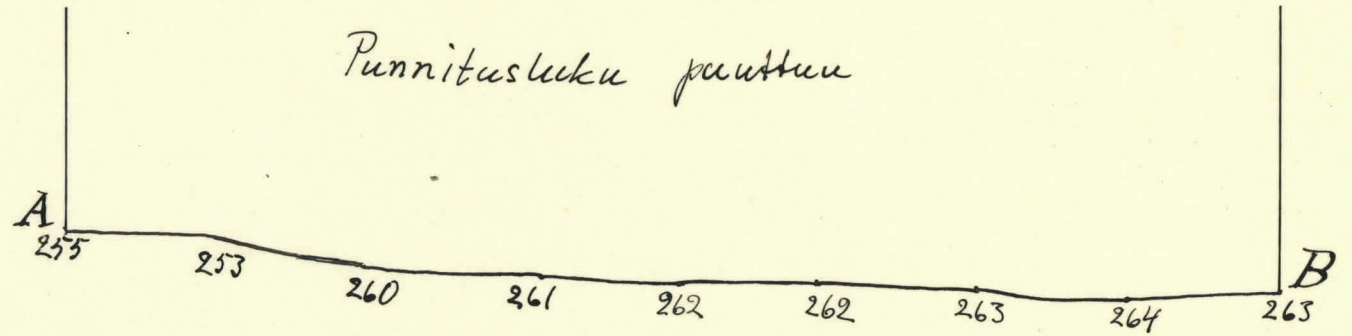 Punnitusluku puuttuu
A
B
255 253 260 261 262 262 263 264 263